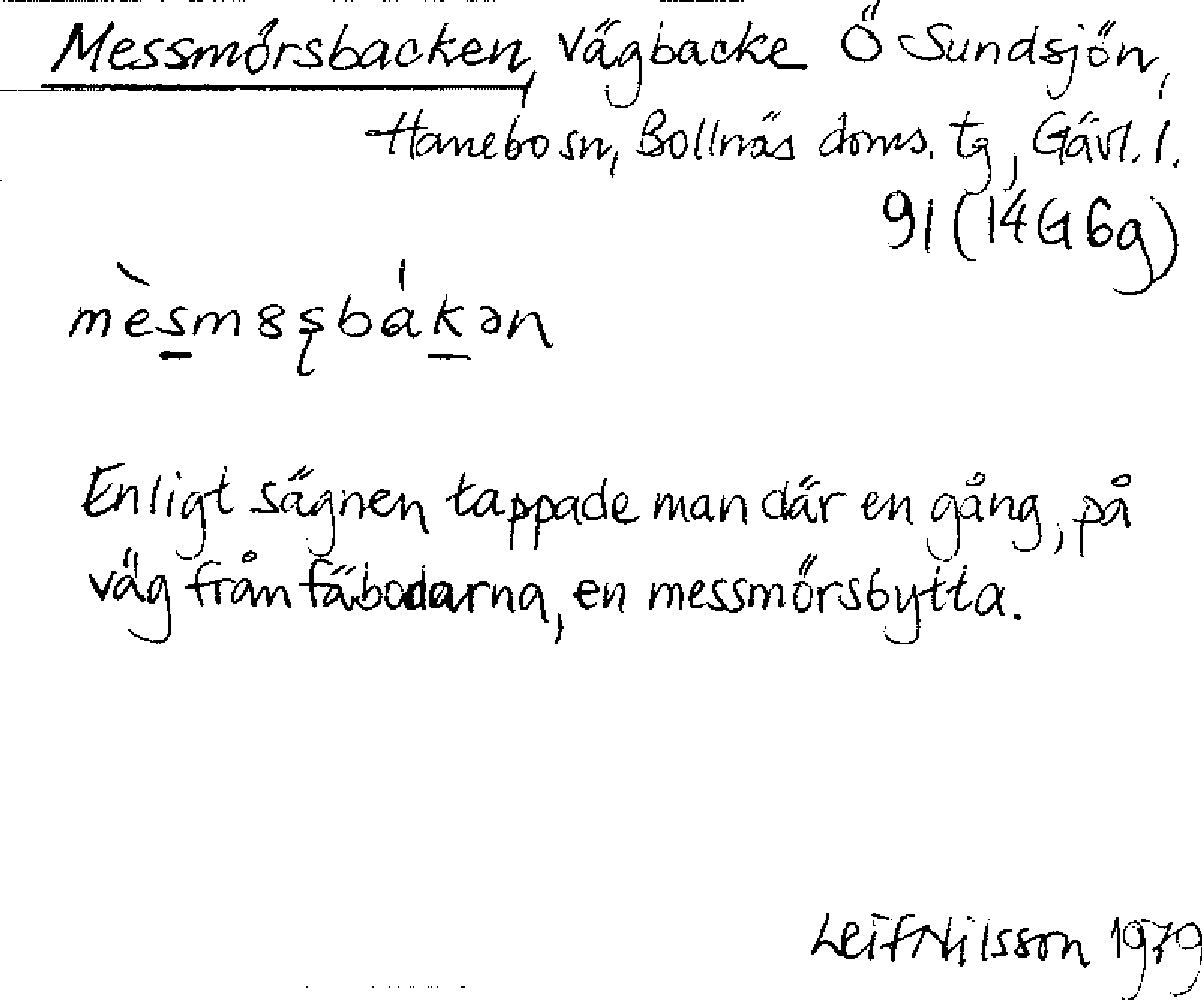 Messmörsbacken, vägbacke Ö Sundsjön,
Hanebo sn, Bollnäs doms. tg, Gävl. l.
91 (14G6g)
mèsmȣʂbákən
Enligt sägnen tappade man där en gång, på
väg från fäbodarna, en messmörsbytta.
Leif Nilsson 1979